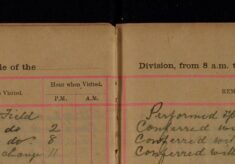 le of the
Division, from 8 a.m. t
Visited.
Hour when Visited.
REM
P.M.
A.M.
Field
1
Performed
do
2
Conferred wit
do
8
Conferred wit
change
11
Conferred with